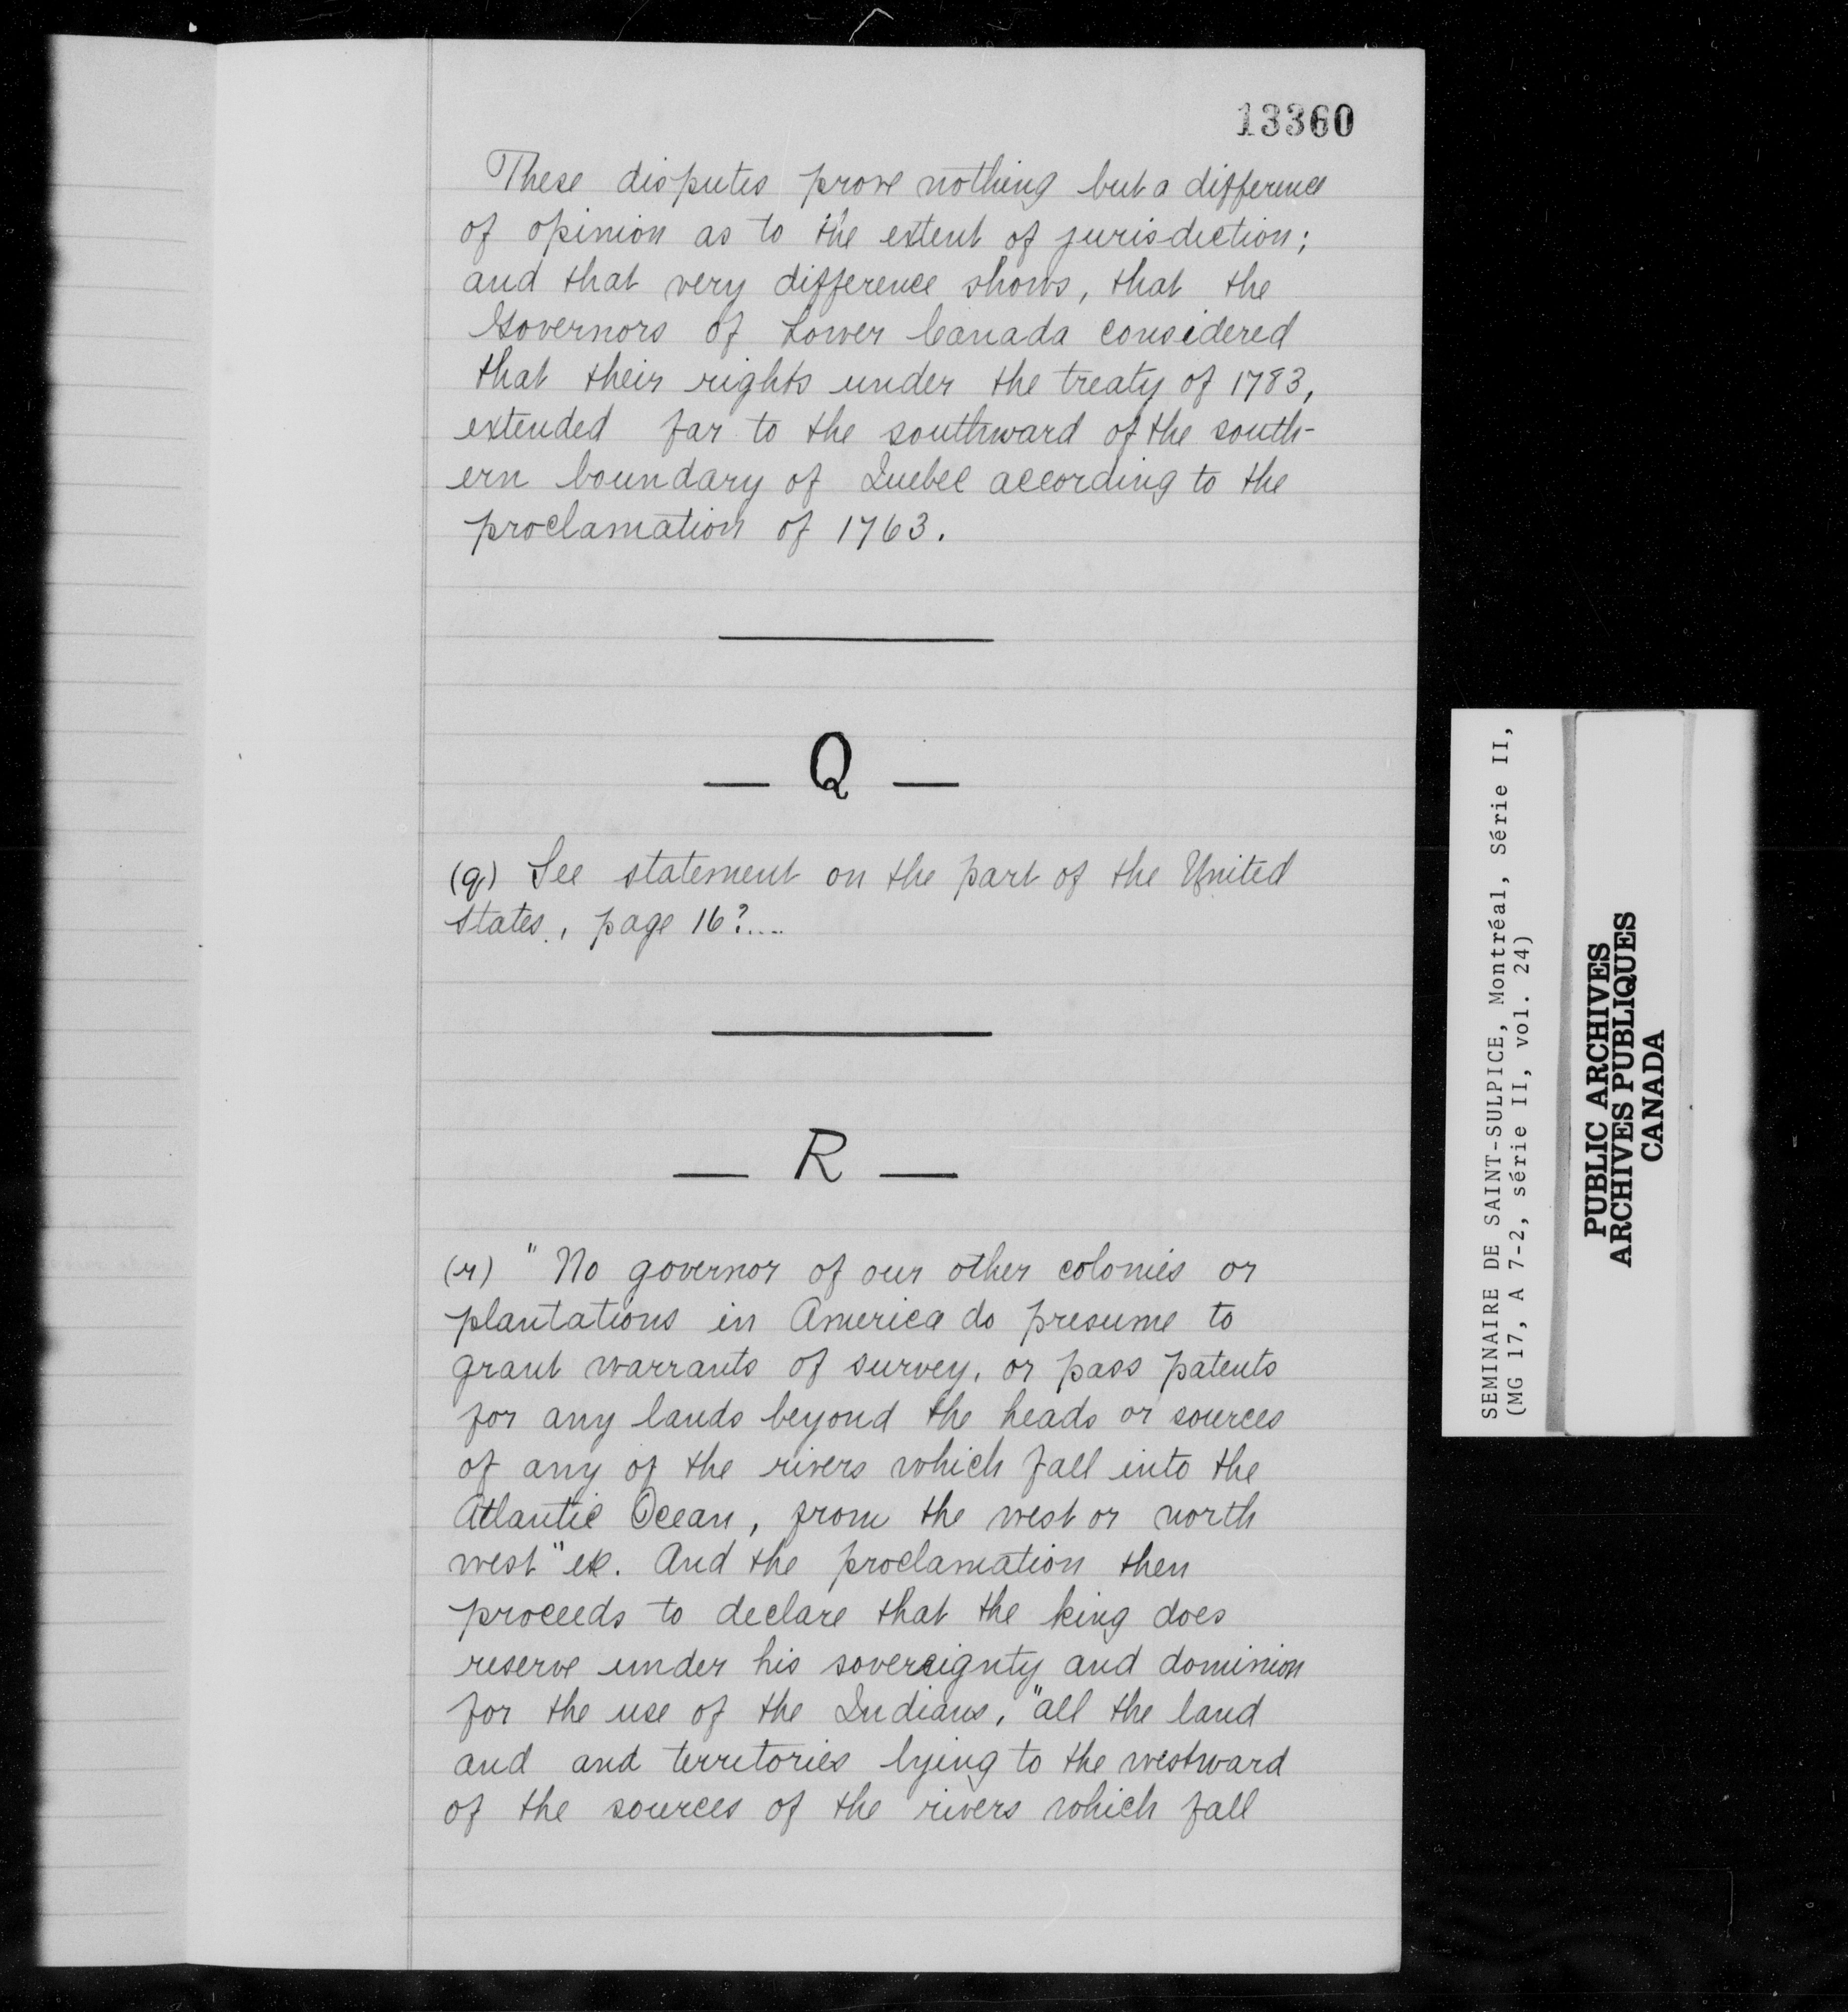 13360
These disputes prove nothing but a difference
of opinion as to the extent of jurisdiction;
and that very difference shows, that the
Governors of Lower Canada considered
that their rights under the treaty of 1783,
extended far to the southward of the south-
ern boundary of Quebec according to the
proclamation of 1763.
— Q —
(q) See statement on the part of the United
States, page 16?....
— R —
(r) "No governor of our other colonies or
plantations in America do presume to
grant warrants of survey, or pass patents
for any lands beyond the heads or sources
of any of the rivers which fall into the
Atlantic Ocean, from the west or north
west" etc. And the proclamation then
proceeds to declare that the king does
reserve under his sovereignty and dominion
for the use of the Indians, "all the land
and and territories lying to the westward
of the sources of the rivers which fall
SEMINAIRE DE SAINT-SULPICE, Montréal, Série II,
(MG 17, A 7-2, série II, vol. 24)
PUBLIC ARCHIVES
ARCHIVES PUBLIQUES
CANADA